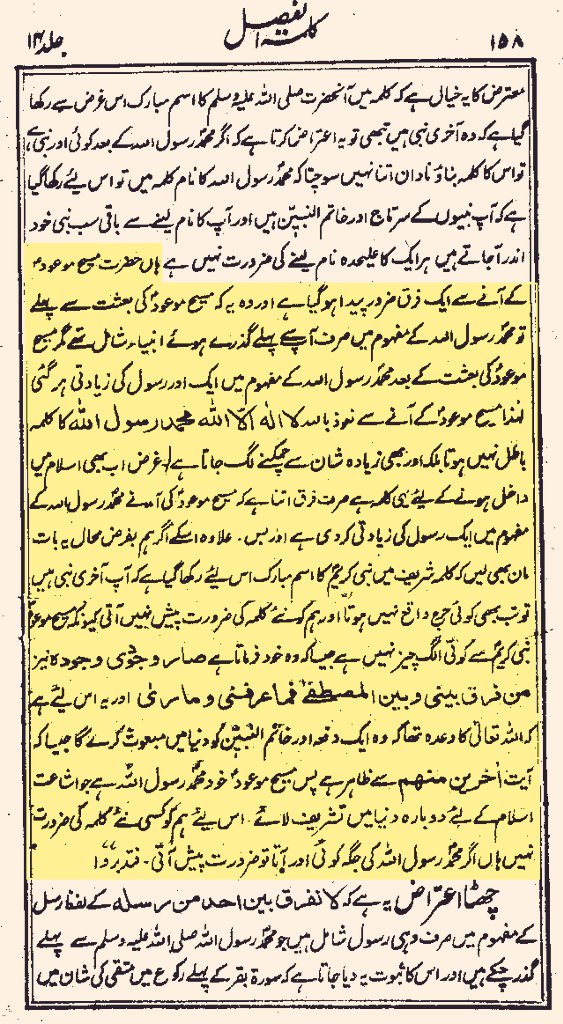 ۱۵۸ کلمۃ الفصل جلد ۱۴
معترض کا یہ خیال ہے کہ کلمہ میں آنحضرت صلی اللہ علیہ وسلم کا اسم مبارک اس غرض سے رکھا
گیا ہے کہ وہ آخری نبی ہیں تبھی تو یہ اعتراض کرتا ہے کہ اگر محمدؐ رسول اللہ کے بعد کوئی اور نبی ہے،
تو اس کا کلمہ بناؤ نادان اتنا نہیں سوچتا کہ محمدؐ رسول اللہ کا نام کلمہ میں تو اس لیے رکھا گیا
ہے کہ آپ نبیوں کے سرتاج اور خاتم النبیّین ہیں اور آپ کا نام لینے سے باقی سب نبی خود
اندر آ جاتے ہیں ہر ایک کا علیحدہ نام لینے کی ضرورت نہیں ہے ہاں حضرت مسیح موعودؑ
کے آنے سے ایک فرق ضرور پیدا ہو گیا ہے اور وہ یہ کہ مسیح موعودؑ کی بعثت سے پہلے
تو محمدؐ رسول اللہ کے مفہوم میں صرف آپ سے پہلے گذرے ہوئے انبیاء شامل تھے مگر مسیح
موعودؑ کی بعثت کے بعد محمدؐ رسول اللہ کے مفہوم میں ایک اور رسول کی زیادتی ہو گئی
لہٰذا مسیح موعودؑ کے آنے سے نعوذ باللہ لا الٰہ الّا اللّٰہ محمد رسول اللّٰہ کا کلمہ
باطل نہیں ہوتا بلکہ اور بھی زیادہ شان سے چمکنے لگ جاتا ہے۔ غرض اب بھی اسلام میں
داخل ہونے کے لیے یہی کلمہ ہے صرف فرق اتنا ہے کہ مسیح موعودؑ کی آمد نے محمدؐ رسول اللہ کے
مفہوم میں ایک رسول کی زیادتی کر دی ہے اور بس۔ علاوہ اسکے اگر ہم بفرض محال یہ بات
مان بھی لیں کہ کلمہ شریف میں نبی کریمؐ کا اسم مبارک اس لیے رکھا گیا ہے کہ آپ آخری نبی ہیں
تو تب بھی کوئی حرج واقع نہیں ہوتا اور ہم کو نئے کلمہ کی ضرورت پیش نہیں آتی کیونکہ مسیح موعودؑ
نبی کریمؐ سے کوئی الگ چیز نہیں ہے جیسا کہ وہ خود فرماتا ہے صار وجودی وجودہ نیز
من فرق بینی و بین المصطفیٰ فما عرفنی و ما رئی اور یہ اس لیے ہے
کہ اللہ تعالیٰ کا وعدہ تھا کہ وہ ایک دفعہ اور خاتم النبیّین کو دنیا میں مبعوث کرے گا جیسا کہ
آیت اٰخرین منھم سے ظاہر ہے پس مسیح موعودؑ خود محمدؐ رسول اللہ ہے جو اشاعت
اسلام کے لیے دوبارہ دنیا میں تشریف لائے۔ اس لیے ہم کو کسی نئے کلمہ کی ضرورت
نہیں ہاں اگر محمدؐ رسول اللہ کی جگہ کوئی اور آتا تو ضرورت پیش آتی۔ فتدبروا
چھٹا اعتراض یہ ہے کہ لا نفرق بین احد من رسلہ کے لفظ رسل
کے مفہوم میں صرف وہی رسول شامل ہیں جو محمدؐ رسول اللہ صلی اللہ علیہ وسلم سے پہلے
گذر چکے ہیں اور اس کا ثبوت یہ دیا جاتا ہے کہ سورۃ بقر کے پہلے رکوع میں متقی کی شان میں